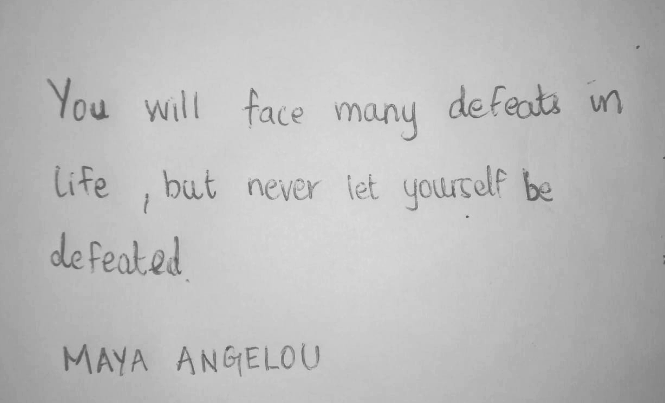 You will face many defeats in
life , but never let yourself be
defeated.
MAYA ANGELOU